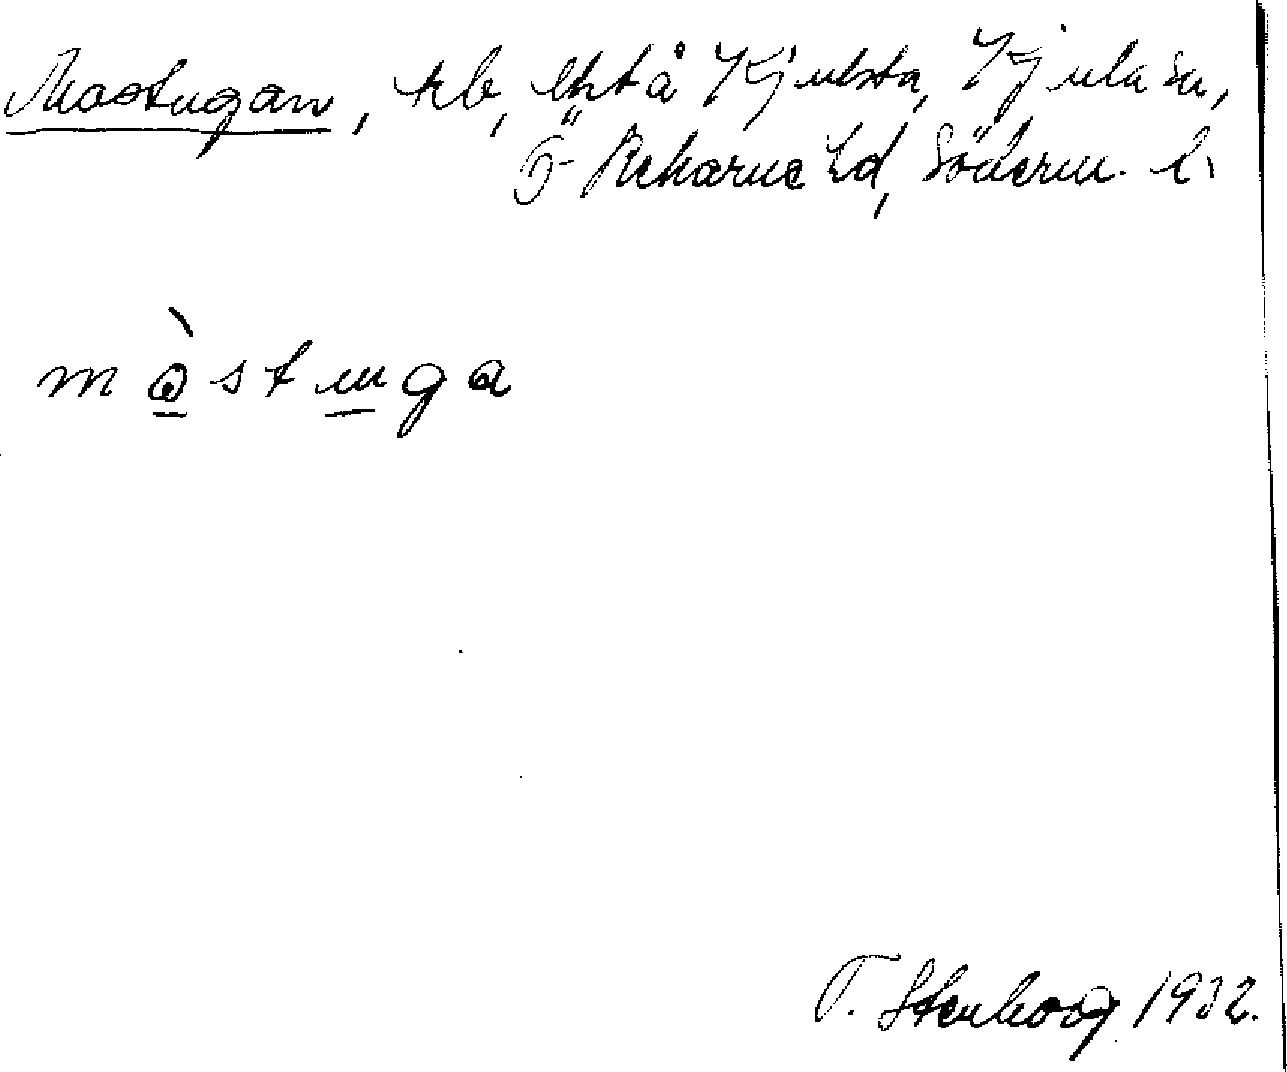 Mostugan, tlb, lht å Kjulsta, Kjula sn,
Ö Rekarne hd, Söderm. l.
mòstuga
T. Stenhoog 1932.